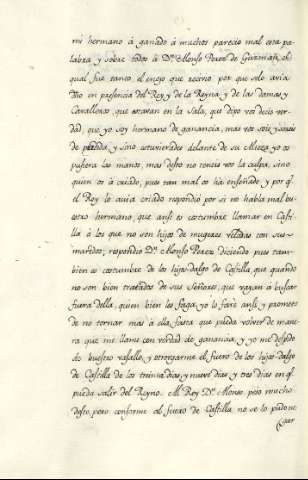 mi hermano á ganado á muchos parecio mal esta pa-
labra y sobre todos á Dn. Alonso Perez de Guzman, el
qual fue tanto el enojo que recivio por que solo avia
dho en presencia del Rey y de la Reyna y de las damas y
Cavalleros, que estavan en la Sala, que dijo vos decis ver-
dad, que yo soy hermano de ganancia, mas vos sois y sereis
de perdida, y sino estuvierades delante de su Alteza yo os
pusiera las manos, mas desto no teneis vos la culpa, sino
quien os á criado, pues tam mal os há enseñado y por qe.
el Rey lo avia criado respondió por si no habla mal bu-
estro hermano, que ansi es costumbre llamar en Casti-
lla á los que no son hijos de mugeres veladas con sus
maridos; respondió Dn. Alonso Perez diciendo pues tam-
bien es costumbre de los hijos-dalgo de Castilla, que quando
no son bien tratados de sus Señores, que vayan á buscar
fuera della, quien bien les faga, yo lo faré ansi, y prometo
de no tornar mas á ella, fasta que pueda volver de mane-
ra que me llame con verdad de ganancia, y yo me despido
de buestro vasallo, y otorgarme el fuero de los hijos-dalgo
de Castilla de los treinta dias, y nueve dias, y tres dias en qe.
pueda salir del Reyno. Al Rey Dn. Alonso peso mucho
desto, pero conforme al fuero de Castilla no se lo pudo ne-
gar